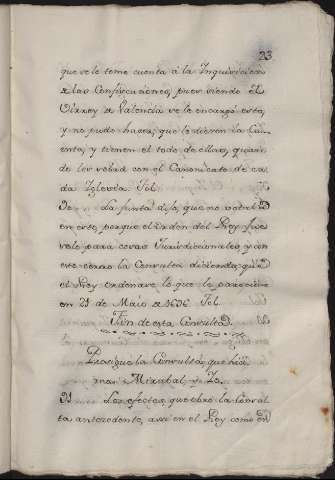 23
que se le tome cuenta à la Inquisicion
de las Confiscaciones, pues siendo él
Virrey de Valencia se le encargó esto,
y no pudo hacer, que le dieran la Cu-
enta, y tienen el todo de ellas, quisan-
do les sobra con el Canonicato de ca-
da Iglesia. Fol.
La Junta dijo, que no votaba
en esto, porque el orden del Rey fue
solo para cosas Jurisdicionales, y con
esto cerro la Consulta diciendo, que
el Rey ordenase lo que le pareciere
en 21 de Maio de 1696. Fol.
Fin de esta Consulta.
Prosigue la Consulta, que hizo
Mirabal, y
Los efectos, que obró la Consul-
ta antecedente, assi en el Rey como en